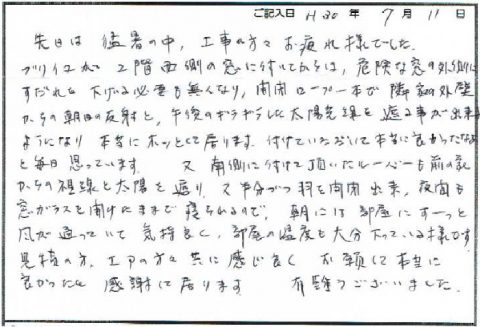 ご記入日 H30年 7月 11日
先日は猛暑の中、工事の方々お疲れ様でした。
ブリイユが2階西側の窓に付いてからは、危険な窓の外側に
すだれを下げる必要も無くなり、開閉ロープ一本が隣家の外壁
からの朝日の反射と、午後のギラギラした太陽光線を遮る事が出来る
ようになり本当にホッとして居ります。付けていただいて本当に良かったなぁ
と毎日思っています。 又南側に付けて頂いたルーバーも前の家
からの視線と太陽を遮り、又半分づつ羽を開閉出来、夜間も
窓ガラスを開けたままで寝られるので、朝には部屋にすーっと
風が通っていて気持良く、部屋の温度も大分下っている様です。
見積の方、工事の方々共に感じ良くお願いして本当に
良かったと感謝して居ります 有難うございました。